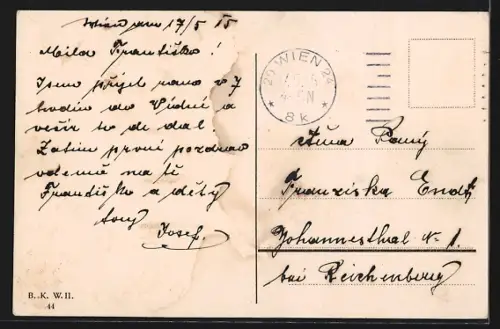 Wien am 17/5 15
Milá Františko!
Jsme přijeli ráno v 7
hodin do Vídně a
večír to de dál.
Zatim první pozdrav
na tě
Františko a děty
Josef.
B. K. W. II.
44
20 WIEN 24
8k
Franziska Endt
Johannesthal No 1.
bei Reichenberg